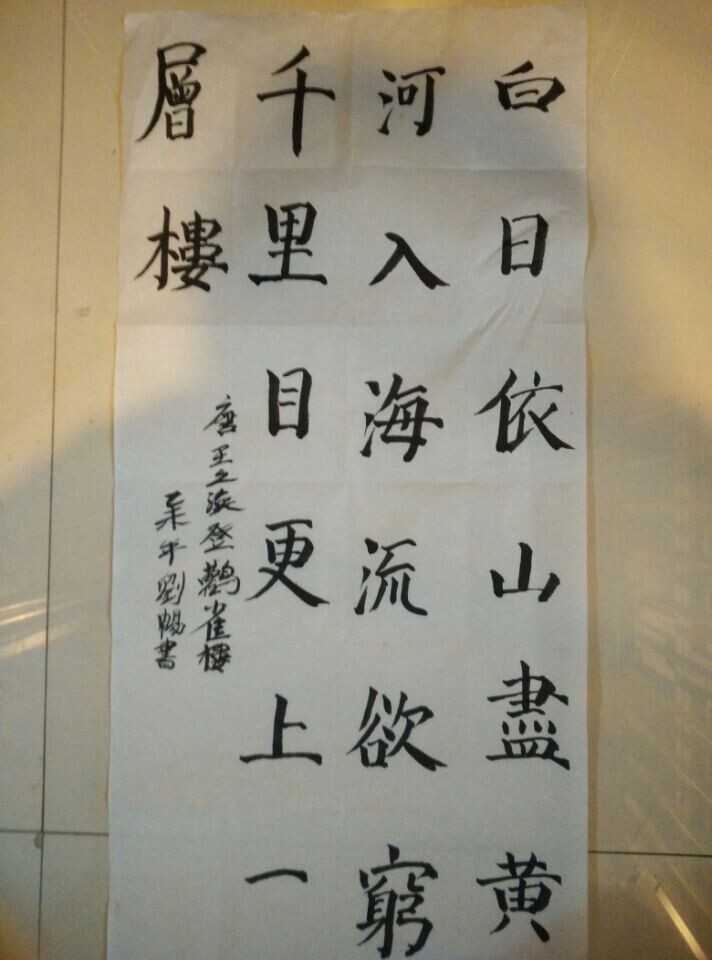 白日依山盡黄
河入海流欲窮
千里目更上一
層樓
唐王之渙登鸛雀樓
乙未年劉暢書